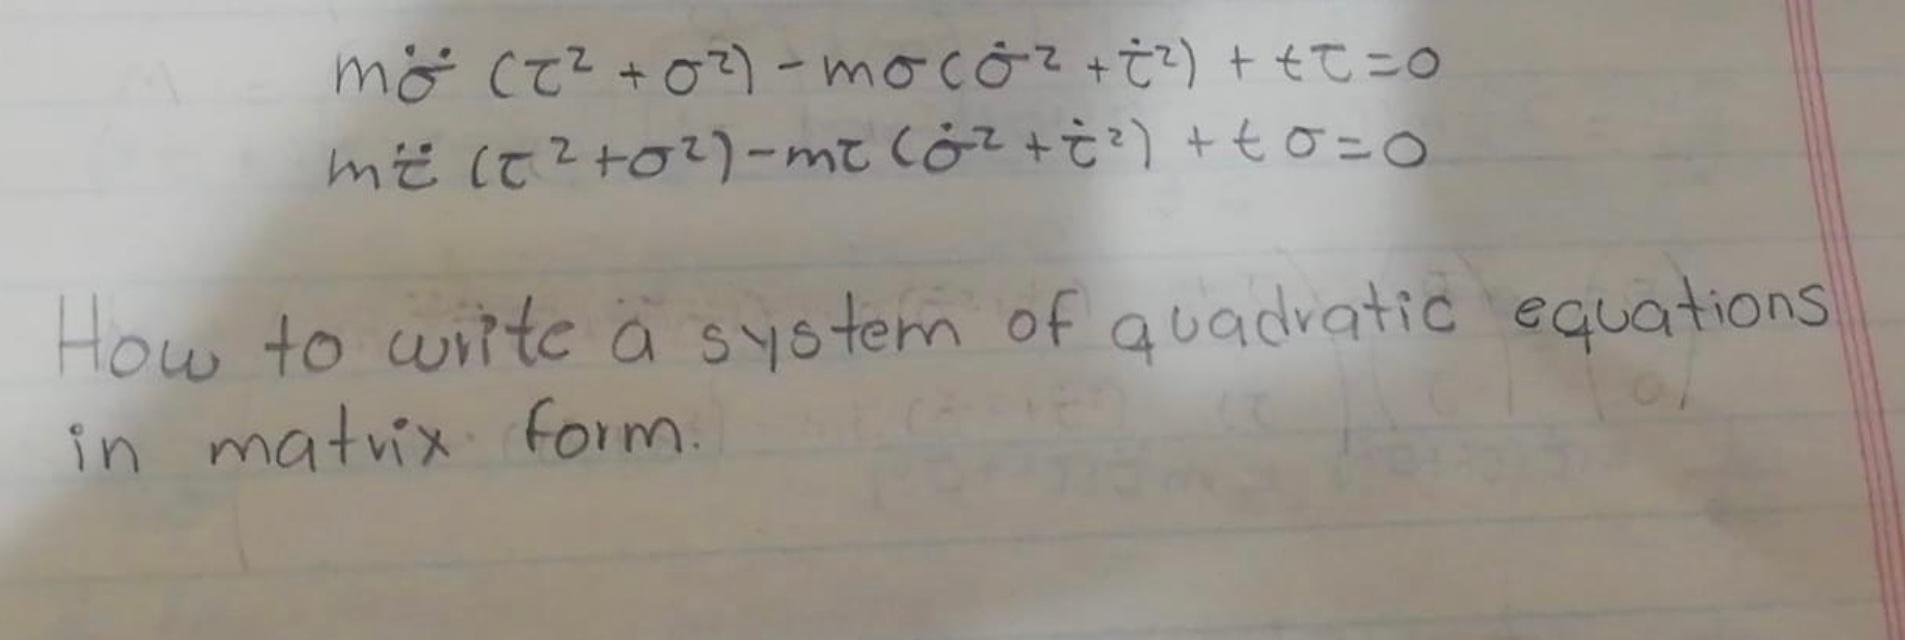 mσ̈ (τ² + σ²) - mσ(σ̇² + τ̇²) + tτ = 0
mτ̈ (τ² + σ²) - mτ (σ̇² + τ̇²) + tσ = 0
How to write a system of quadratic equations
in matrix form.